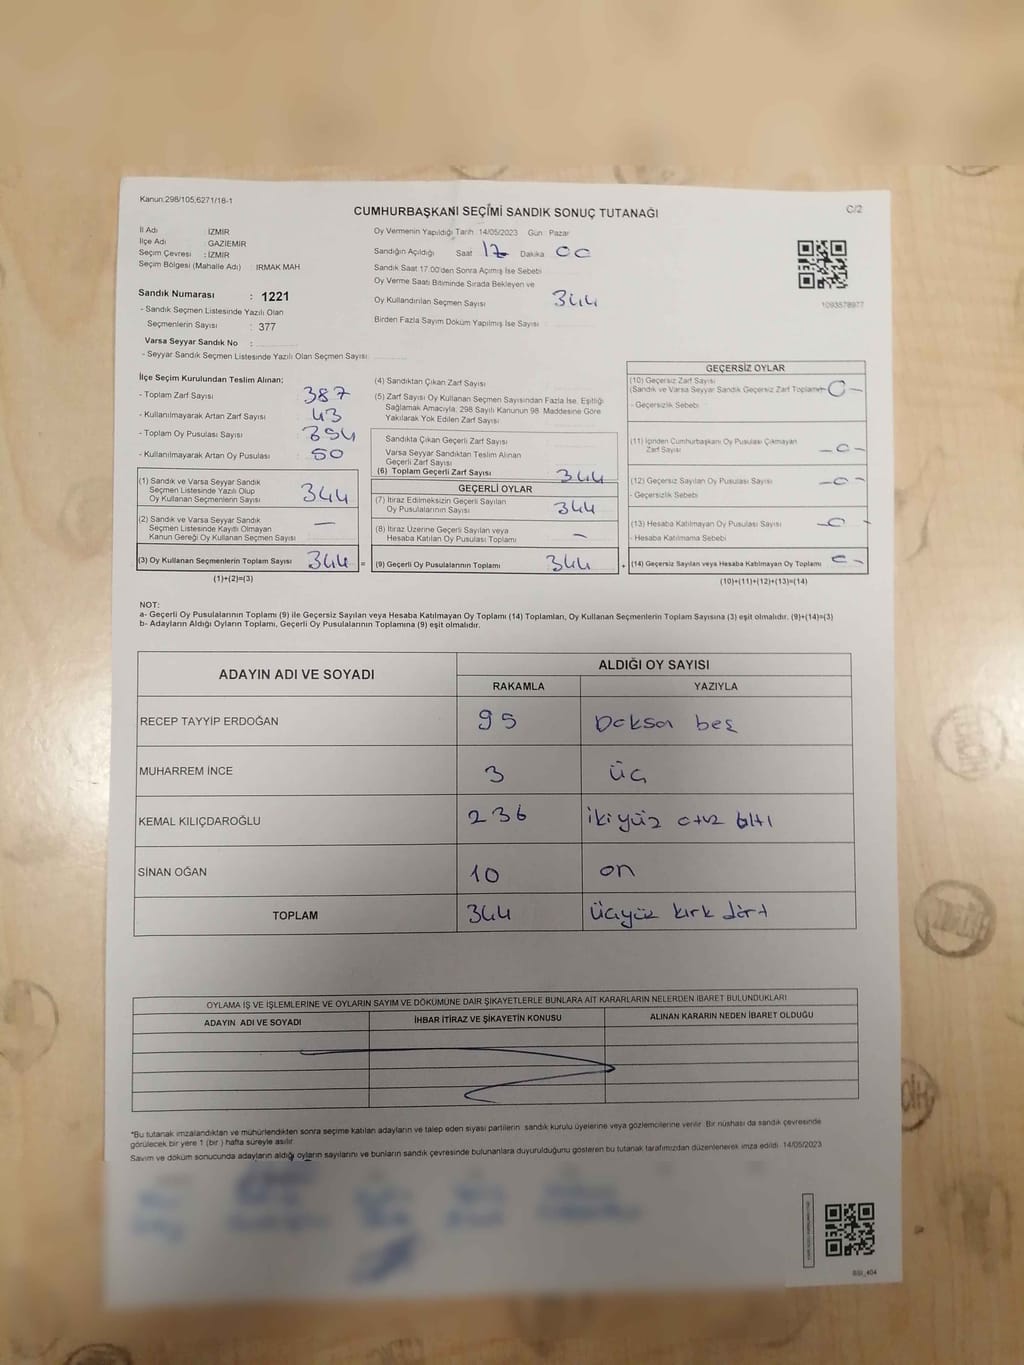 Kanun:298/105,6271/18-1
C/2
CUMHURBAŞKANI SEÇİMİ SANDIK SONUÇ TUTANAĞI
İl Adı : İZMİR
İlçe Adı : GAZİEMİR
Seçim Çevresi : İZMİR
Seçim Bölgesi (Mahalle Adı) : IRMAK MAH
Sandık Numarası : 1221
- Sandık Seçmen Listesinde Yazılı Olan
Seçmenlerin Sayısı : 377
Varsa Seyyar Sandık No :
- Seyyar Sandık Seçmen Listesinde Yazılı Olan Seçmen Sayısı:
Oy Vermenin Yapıldığı Tarih :14/05/2023 Gün : Pazar
Sandığın Açıldığı Saat 17 Dakika 00
Sandık Saat 17:00'den Sonra Açımış İse Sebebi
Oy Verme Saati Bitiminde Sırada Bekleyen ve
Oy Kullandırılan Seçmen Sayısı 344
Birden Fazla Sayım Döküm Yapılmış İse Sayısı :
1093578977
İlçe Seçim Kurulundan Teslim Alınan;
- Toplam Zarf Sayısı : 387
- Kullanılmayarak Artan Zarf Sayısı : 43
- Toplam Oy Pusulası Sayısı : 394
- Kullanılmayarak Artan Oy Pusulası : 50
(1) Sandık ve Varsa Seyyar Sandık
Seçmen Listesinde Yazılı Olup
Oy Kullanan Seçmenlerin Sayısı 344
(2) Sandık ve Varsa Seyyar Sandık
Seçmen Listesinde Kayıtlı Olmayan
Kanun Gereği Oy Kullanan Seçmen Sayısı —
(3) Oy Kullanan Seçmenlerin Toplam Sayısı 344
(1)+(2)=(3)
(4) Sandıktan Çıkan Zarf Sayısı
(5) Zarf Sayısı Oy Kullanan Seçmen Sayısından Fazla İse, Eşitliği
Sağlamak Amacıyla, 298 Sayılı Kanunun 98. Maddesine Göre
Yakılarak Yok Edilen Zarf Sayısı
Sandıkta Çıkan Geçerli Zarf Sayısı
Varsa Seyyar Sandıktan Teslim Alınan
Geçerli Zarf Sayısı
(6) Toplam Geçerli Zarf Sayısı 344
GEÇERLİ OYLAR
(7) İtiraz Edilmeksizin Geçerli Sayılan
Oy Pusulalarının Sayısı 344
(8) İtiraz Üzerine Geçerli Sayılan veya
Hesaba Katılan Oy Pusulası Toplamı —
= (9) Geçerli Oy Pusulalarının Toplamı 344
GEÇERSİZ OYLAR
(10) Geçersiz Zarf Sayısı
(Sandık ve Varsa Seyyar Sandık Geçersiz Zarf Toplamı) -0-
- Geçersizlik Sebebi
(11) İçinden Cumhurbaşkanı Oy Pusulası Çıkmayan
Zarf Sayısı -0-
(12) Geçersiz Sayılan Oy Pusulası Sayısı -0-
- Geçersizlik Sebebi
(13) Hesaba Katılmayan Oy Pusulası Sayısı -0-
- Hesaba Katılmama Sebebi
+ (14) Geçersiz Sayılan veya Hesaba Katılmayan Oy Toplamı 0-
(10)+(11)+(12)+(13)=(14)
NOT:
a- Geçerli Oy Pusulalarının Toplamı (9) ile Geçersiz Sayılan veya Hesaba Katılmayan Oy Toplamı (14) Toplamları, Oy Kullanan Seçmenlerin Toplam Sayısına (3) eşit olmalıdır. (9)+(14)=(3)
b- Adayların Aldığı Oyların Toplamı, Geçerli Oy Pusulalarının Toplamına (9) eşit olmalıdır.
ADAYIN ADI VE SOYADI
ALDIĞI OY SAYISI
RAKAMLA YAZIYLA
RECEP TAYYİP ERDOĞAN 95 Doksan beş
MUHARREM İNCE 3 üç
KEMAL KILIÇDAROĞLU 236 ikiyüz otuz altı
SİNAN OĞAN 10 on
TOPLAM 344 Üçyüz kırk dört
OYLAMA İŞ VE İŞLEMLERİNE VE OYLARIN SAYIM VE DÖKÜMÜNE DAİR ŞİKAYETLERLE BUNLARA AİT KARARLARIN NELERDEN İBARET BULUNDUKLARI
ADAYIN ADI VE SOYADI İHBAR İTİRAZ VE ŞİKAYETİN KONUSU ALINAN KARARIN NEDEN İBARET OLDUĞU
*Bu tutanak imzalandıktan ve mühürlendikten sonra seçime katılan adayların ve talep eden siyasi partilerin sandık kurulu üyelerine veya gözlemcilerine verilir. Bir nüshası da sandık çevresinde
görülecek bir yere 1 (bir ) hafta süreyle asılır.
Sayım ve döküm sonucunda adayların aldığı oyların sayılarını ve bunların sandık çevresinde bulunanlara duyurulduğunu gösteren bu tutanak tarafımızdan düzenlenerek imza edildi. 14/05/2023